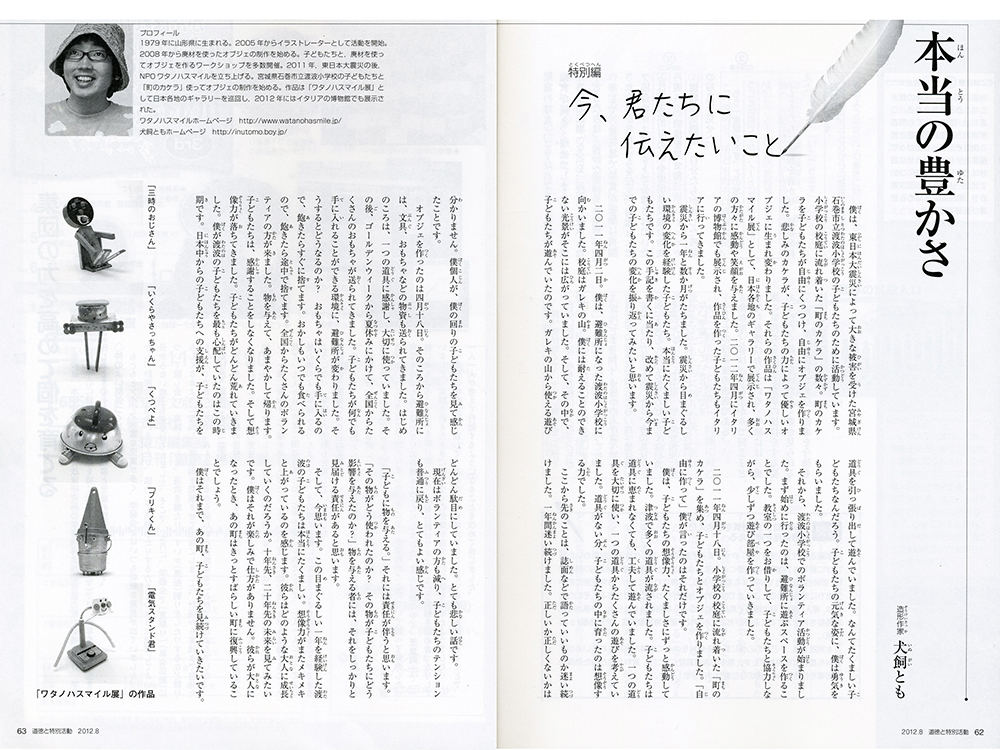 本当の豊かさ
特別編
今、君たちに
伝えたいこと
造形作家 犬飼とも
僕は、東日本大震災によって大きな被害を受けた宮城県
石巻市立渡波小学校の子どもたちのために活動しています。
小学校の校庭に流れ着いた「町のカケラ」の数々。町のカケ
ラを子どもたちが自由にくっつけ、自由にオブジェを作りま
した。悲しみのカケラが、子どもたちの力によって優しいオ
ブジェに生まれ変わりました。それらの作品は「ワタノハス
マイル展」として、日本各地のギャラリーで展示され、多く
の方々に感動や笑顔を与えました。二〇一二年四月にイタリ
アの博物館でも展示され、作品を作った子どもたちもイタリ
アに行ってきました。
震災から一年と数か月がたちました。震災から目まぐるし
い環境の変化を経験した子どもたち。本当にたくましい子ど
もたちです。この手記を書くに当たり、改めて震災から今ま
での子どもたちの変化を振り返ってみたいと思います。
二〇一一年四月二日、僕は、避難所になった渡波小学校に
向かいました。校庭はガレキの山。僕には耐えることのでき
ない光景がそこには広がっていました。そして、その中で、
子どもたちが遊んでいたのです。ガレキの山から使える遊び
道具を引っ張り出して遊んでいました。なんてたくましい子
どもたちなんだろう。子どもたちの元気な姿に、僕は勇気を
もらいました。
それから、渡波小学校でのボランティア活動が始まりまし
た。まず始めに行ったのは、避難所に遊ぶスペースを作るこ
とでした。教室の一つをお借りして、子どもたちと協力しな
がら、少しずつ遊び部屋を作っていきました。
二〇一一年四月十八日、小学校の校庭に流れ着いた「町の
カケラ」を集め、子どもたちとオブジェを作りました。「自
由に作って」僕が言ったのはそれだけです。
僕は、子どもたちの想像力、たくましさにずっと感動して
いました。津波で多くの道具が流されました。子どもたちは
道具に恵まれなくても、工夫して遊んでいました。一つの道
具を大切に使い、一つの道具からたくさんの遊びを考えてい
ました。道具がない分、子どもたちの中に育ったのは想像す
る力でした。
ここから先のことは、誌面などで語っていいものか迷い続
けました。一年間迷い続けました。正しいか正しくないかは
2012.8 道徳と特別活動 62
プロフィール
1979年に山形県に生まれる。2005年からイラストレーターとして活動を開始。
2008年から廃材を使ったオブジェの制作を始める。子どもたちと、廃材を使っ
てオブジェを作るワークショップを多数開催。2011年、東日本大震災の後、
NPOワタノハスマイルを立ち上げる。宮城県石巻市立渡波小学校の子どもたちと
「町のカケラ」使ってオブジェの制作を始める。作品は「ワタノハスマイル展」と
して日本各地のギャラリーを巡回し、2012年にはイタリアの博物館でも展示さ
れた。
ワタノハスマイルホームページ http://www.watanohasmile.jp/
犬飼ともホームページ http://inutomo.boy.jp/
分かりません。僕個人が、僕の回りの子どもたちを見て感じ
たことです。
オブジェを作ったのは四月十八日。そのころから避難所に
は、文具、おもちゃなどの物資も送られてきました。はじめ
のころは、一つの道具に感謝し、大切に使っていました。そ
の後、ゴールデンウィークから夏休みにかけて、全国からた
くさんのおもちゃが送られてきました。子どもたちが何でも
手に入れることができる環境に、避難所が変わりました。そ
うするとどうなるのか？ おもちゃはいくらでも手に入るの
で、飽きたらすぐに捨てます。おかしもいつでも食べられる
ので、飽きたら途中で捨てます。全国からたくさんのボラン
ティアの方が来ました。物を与えて、あまやかして帰ります。
子どもたちは、感謝することをしなくなりました。そして想
像力が落ちてきました。子どもたちがどんどん荒れていきま
した。僕が渡波の子どもたちを最も心配していたのはこの時
期です。日本中からの子どもたちへの支援が、子どもたちを
どんどん駄目にしていました。とても悲しい話です。
現在はボランティアの方も減り、子どもたちのテンション
も普通に戻り、とてもよい感じです。
「子どもに物を与える。」それには責任が伴うと思います。
「その物がどう使われたのか？ その物が子どもたちにどう
影響を与えたのか？」物を与える者には、それをしっかりと
見届ける責任があると思います。
そして、今思います。この目まぐるしい一年を経験した渡
波の子どもたちは本当にたくましい。想像力がまたメキメキ
と上がっているのを感じます。彼らはどのような大人に成長
していくのだろうか。十年先、二十年先の未来を見てみたい
です。僕はそれが楽しみで仕方がありません。彼らが大人に
なったとき、あの町はきっとすばらしい町に復興しているこ
とでしょう。
僕はそれまで、あの町、子どもたちを見続けていきたいです。
「三時のおじさん」
「いくらやさっちゃん」
「くつべよ」
「ブリキくん」
「電気スタンド君」
「ワタノハスマイル展」の作品
63 道徳と特別活動 2012.8